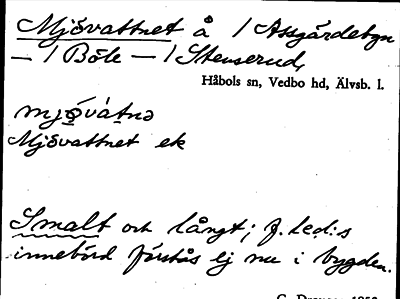 Mjövattnet å / Assgärdebyn
— / Böle — / Stenserud,
Håbols sn, Vedbo hd, Älvsb. l.
mjǿvàtnə
Mjövattnet ek
Smalt och långt; f. led:s
innebörd förstås ej nu i bygden.